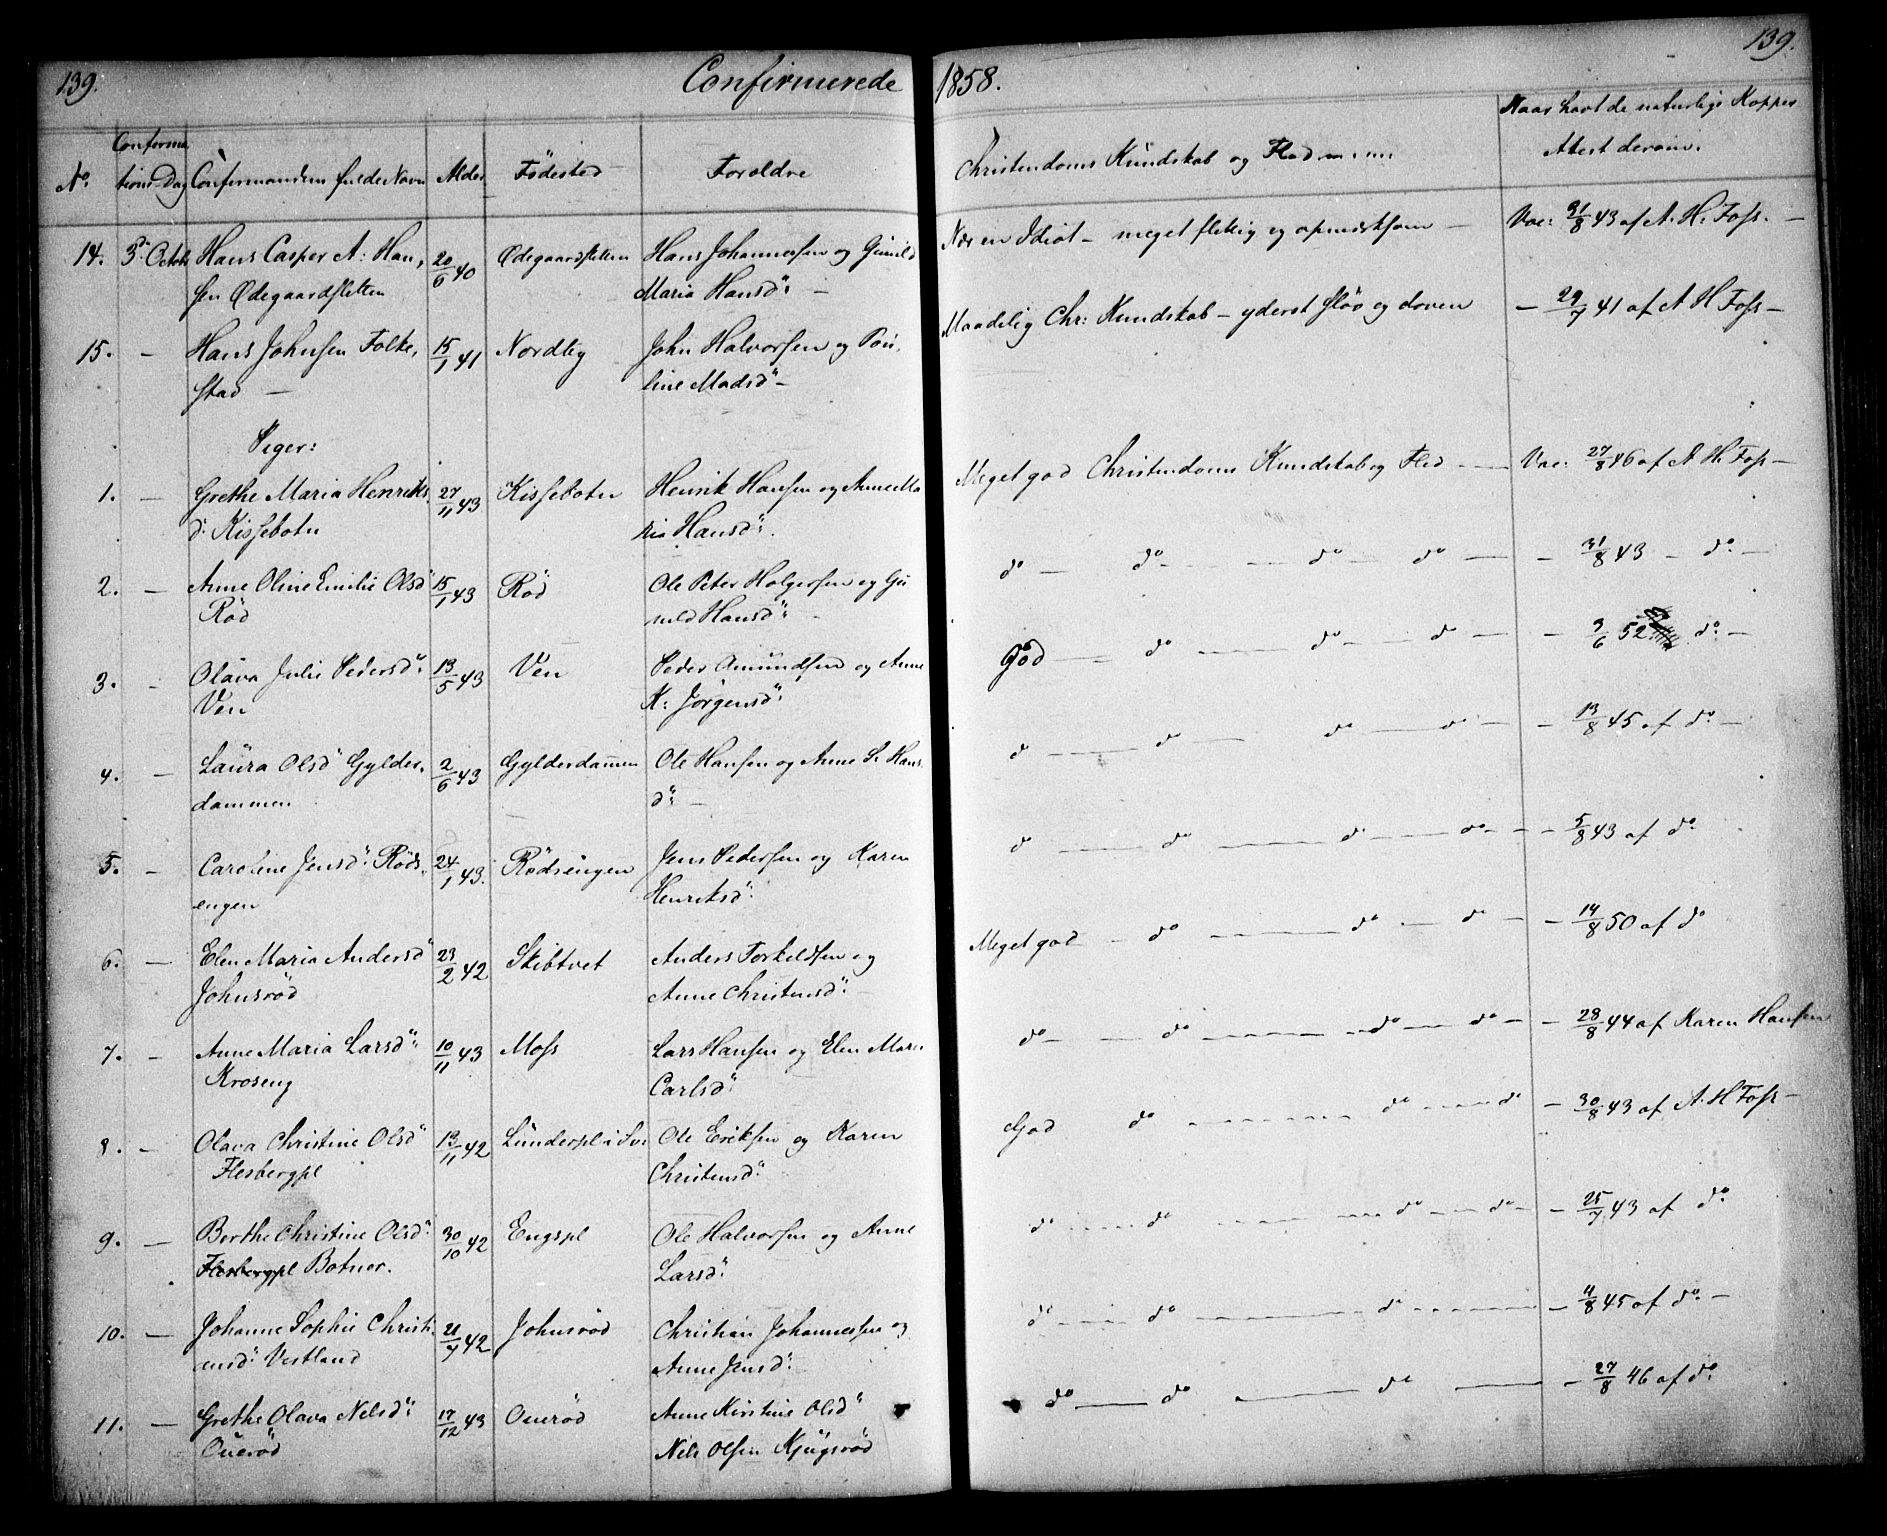 139.
Confirmerede 1858.
139.
No. Confirmations Dag Confirmandens fulde Navn Alder Fødested Forældre Christendoms Kundskab og Flid m.m. Naar havt de naturlige Kopper Attest derom.
14. 3 Octob Hans Casper A: Han, 20/6 40 Ødegaardsletten Hans Johannessen og Gunild Nær en Idiot – meget flittig og opmærksom – Vac: 31/8 43 af A. H. Foss. –
sen Ødegaardsletten Maria Hansd: –
15. – Hans Johnsen Folke, 15/1 41 Nordby John Halvorsen og Pou, Maadelig Chr: Kundskab – yderst sløv og doven – 29/7 41 af A H Foss –
stad – line Madsd: –
Piger:
1. – Grethe Maria Henriks, 27/11 43 Kissebotn Henrik Hansen og Anne Ma Meget god Christendoms Kundskab og Flid – Vac: 27/8 46 af A H. Foss –
d: Kissebotn ria Hansd:
2. – Anne Oline Emilie Olsd 15/1 43 Rød Ole Peter Holgersen og Gu do – do – do – do – – 31/8 43 – do –
Rød nild Hansd: –
3. – Olava Julie Pedersd: 13/5 43 Ven Peder Amundsen og Anne God – do – do – do – – 3/6 52 do –
Ven K: Jörgensd:
4. – Laura Olsd Gylder, 2/6 43 Gylderdammen Ole Hansen og Anne S. Hans do – do – do – do – – 13/8 45 af do –
dammen d: –
5. – Caroline Jensd: Röds, 24/1 43. Rödsengen Jens Pedersen og Karen do – do – do – do – – 5/8 43 af do
engen Henriksd:
6. – Elen Maria Andersd 23/2 42 Skibtvet Anders Torkeldsen og Meget god – do – do – do – – 14/8 50 af do
Johnsrød Anne Christensd:
7. – Anne Maria Larsd 10/11 43 Moss Lars Hansen og Elen Mari do – do – do – do – – 28/8 44 af Karen Hansen
Kroseng Carlsd:
8. – Olava Christine Olsd 13/11 42 Lunderpl i Ole Eriksen og Karen God do – do – do – 30/8 43 af A. H Foss –
Flesbergpl Christensd:
9. – Berthe Christine Olsd: 30/10 42 Engspl Ole Halvorsen og Anne do – do – do – do – – 25/7 43 af do
Flesbergpl Botner. Larsd:
10. – Johanne Sophie Christi 21/7 42 Johnsrød Christian Johannessen og do – do – do – – 11/8 45 af do –
ansd: Vestland Anne Jensd:
11. – Grethe Olava Nelsd: 17/12 43 Ouerød Anne Kirstine Olsd do – do – do – – 27/8 46 af do
Ouerød Nils Olsen